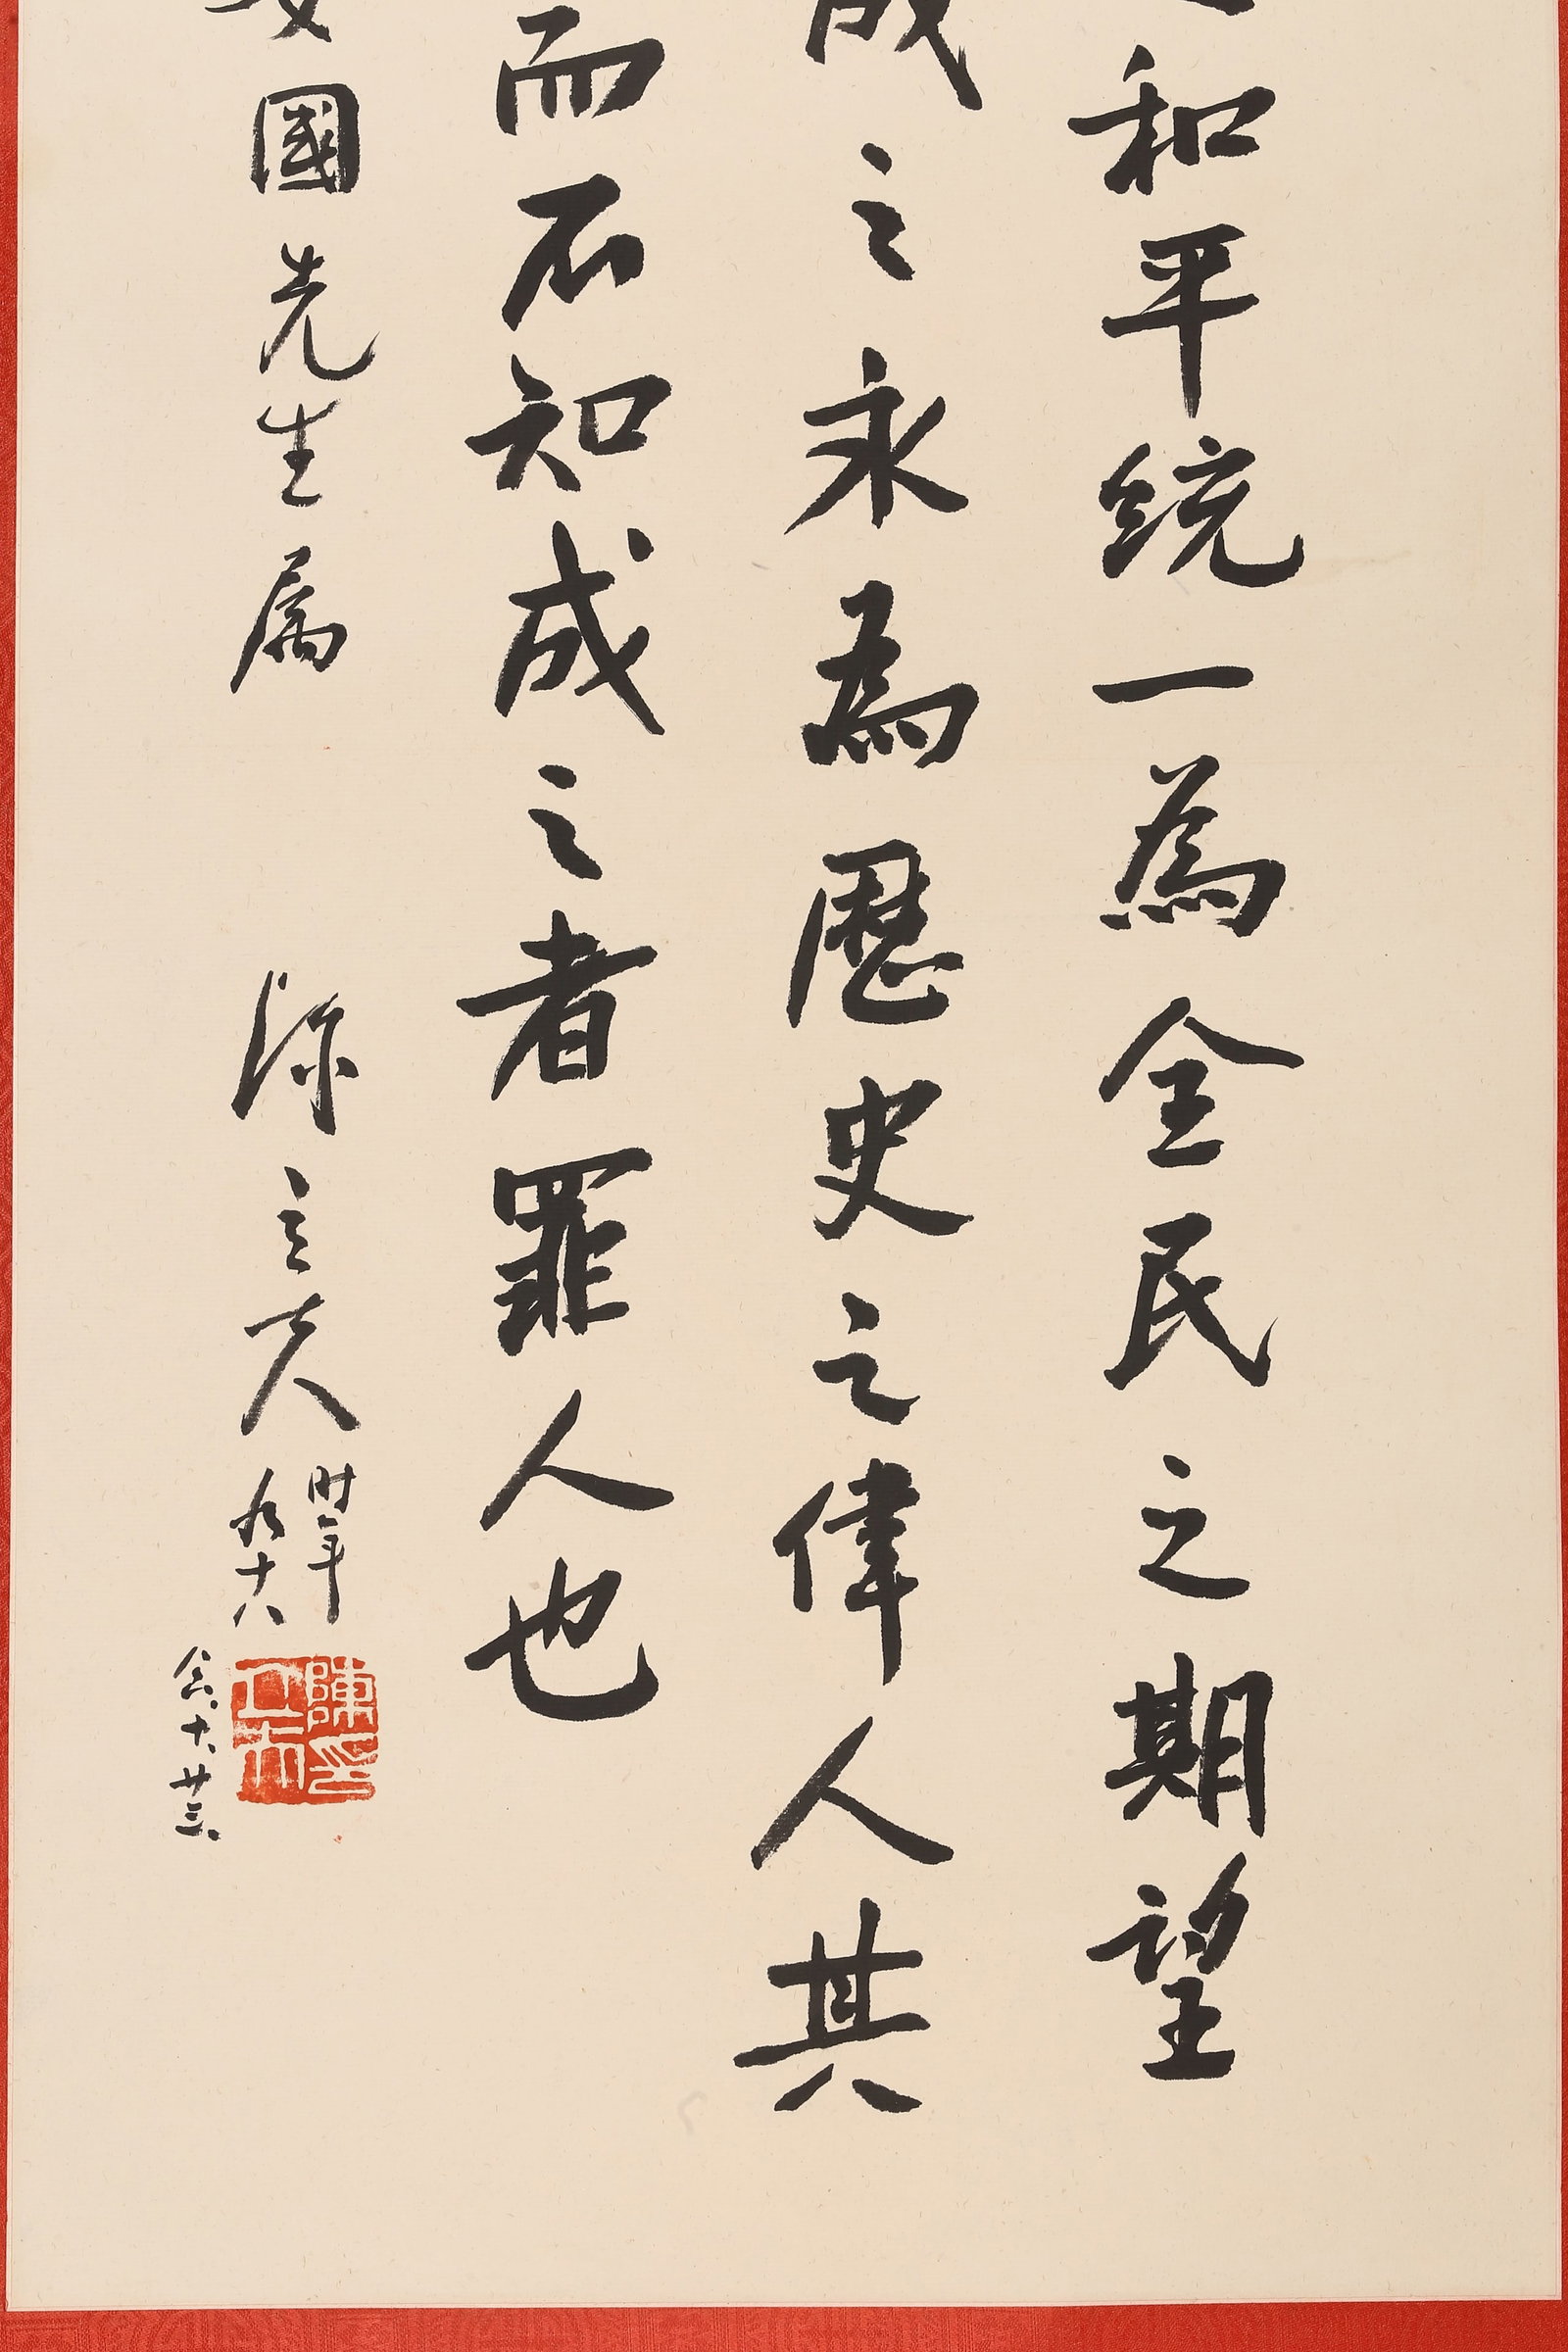 和平統一為全民之期望
成之永為歷史之偉人其
而不知成之者罪人也
國先生属
陳立夫 時年九十八
陳立夫印
六.十.廿三.